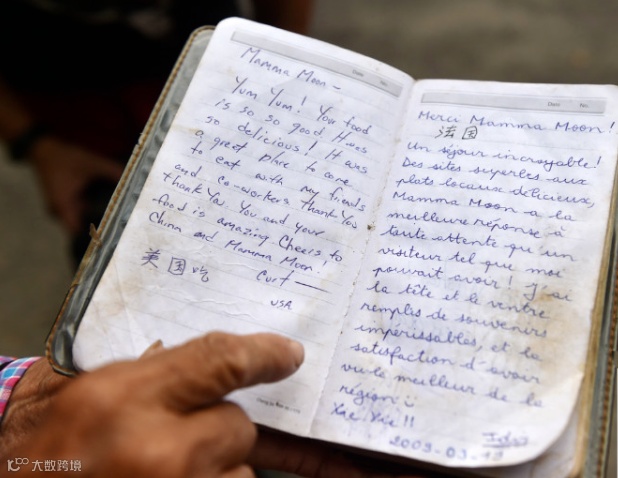 Date No.
Mamma Moon –
Yum Yum! You food
is so so good It was
so delicious! It was
a great place to come
to eat with my friends
and co-workers Thank You
thank You. You and your
food is amazing Cheers to
China and Mamma Moon!
美国吃 Curt
USA
Date No.
Merci Mamma Moon!
法国
Un séjour incroyable!
Des sites superbes aux
plats locaux délicieux,
Mamma Moon a la
meilleure réponse à
toute attente qu'un
visiteur tel que moi
pouvait avoir! J'ai
la tête et le ventre
remplis de souvenirs
impérissables, et la
satisfaction d'avoir
vu le meilleur de la
région
Xie Xie!!
2009.03.
大数跨境